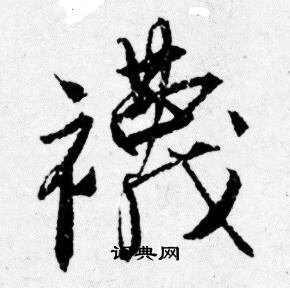 襪
词典网